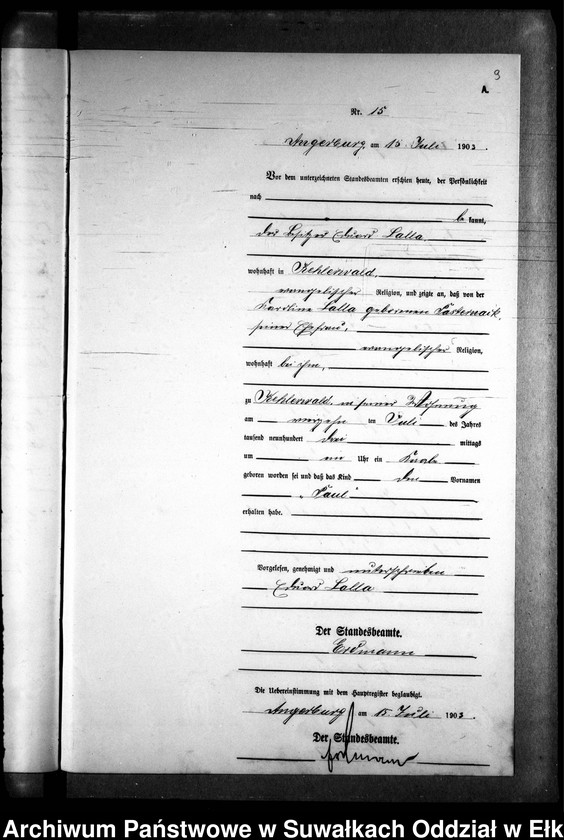 9
A.
Nr. 15
Angerburg, am 15 Juli 1903.
Vor dem unterzeichneten Standesbeamten erschien heute, der Persönlichkeit
nach
be kannt,
der Besitzer Eduard Lalla
wohnhaft in Kehlerwald
evangelischer Religion, und zeigte an, daß von der
Karoline Lalla geborenen Pasternaik,
seiner Ehefrau,
evangelischer Religion,
wohnhaft bei ihm,
zu Kehlerwald, in seiner Wohnung
am vierzehn ten Juli des Jahres
tausend neunhundert drei mittags
um Uhr ein Knabe
geboren worden sei und daß das Kind den Vornamen
„Paul"
erhalten habe.
Vorgelesen, genehmigt und unterschrieben
Eduard Lalla
Der Standesbeamte.
Erdmann
Die Uebereinstimmung mit dem Hauptregister beglaubigt.
Angerburg am 15. Juli 1903.
Der Standesbeamte.
Erdmann
Archiwum Państwowe w Suwałkach Oddział w Ełk